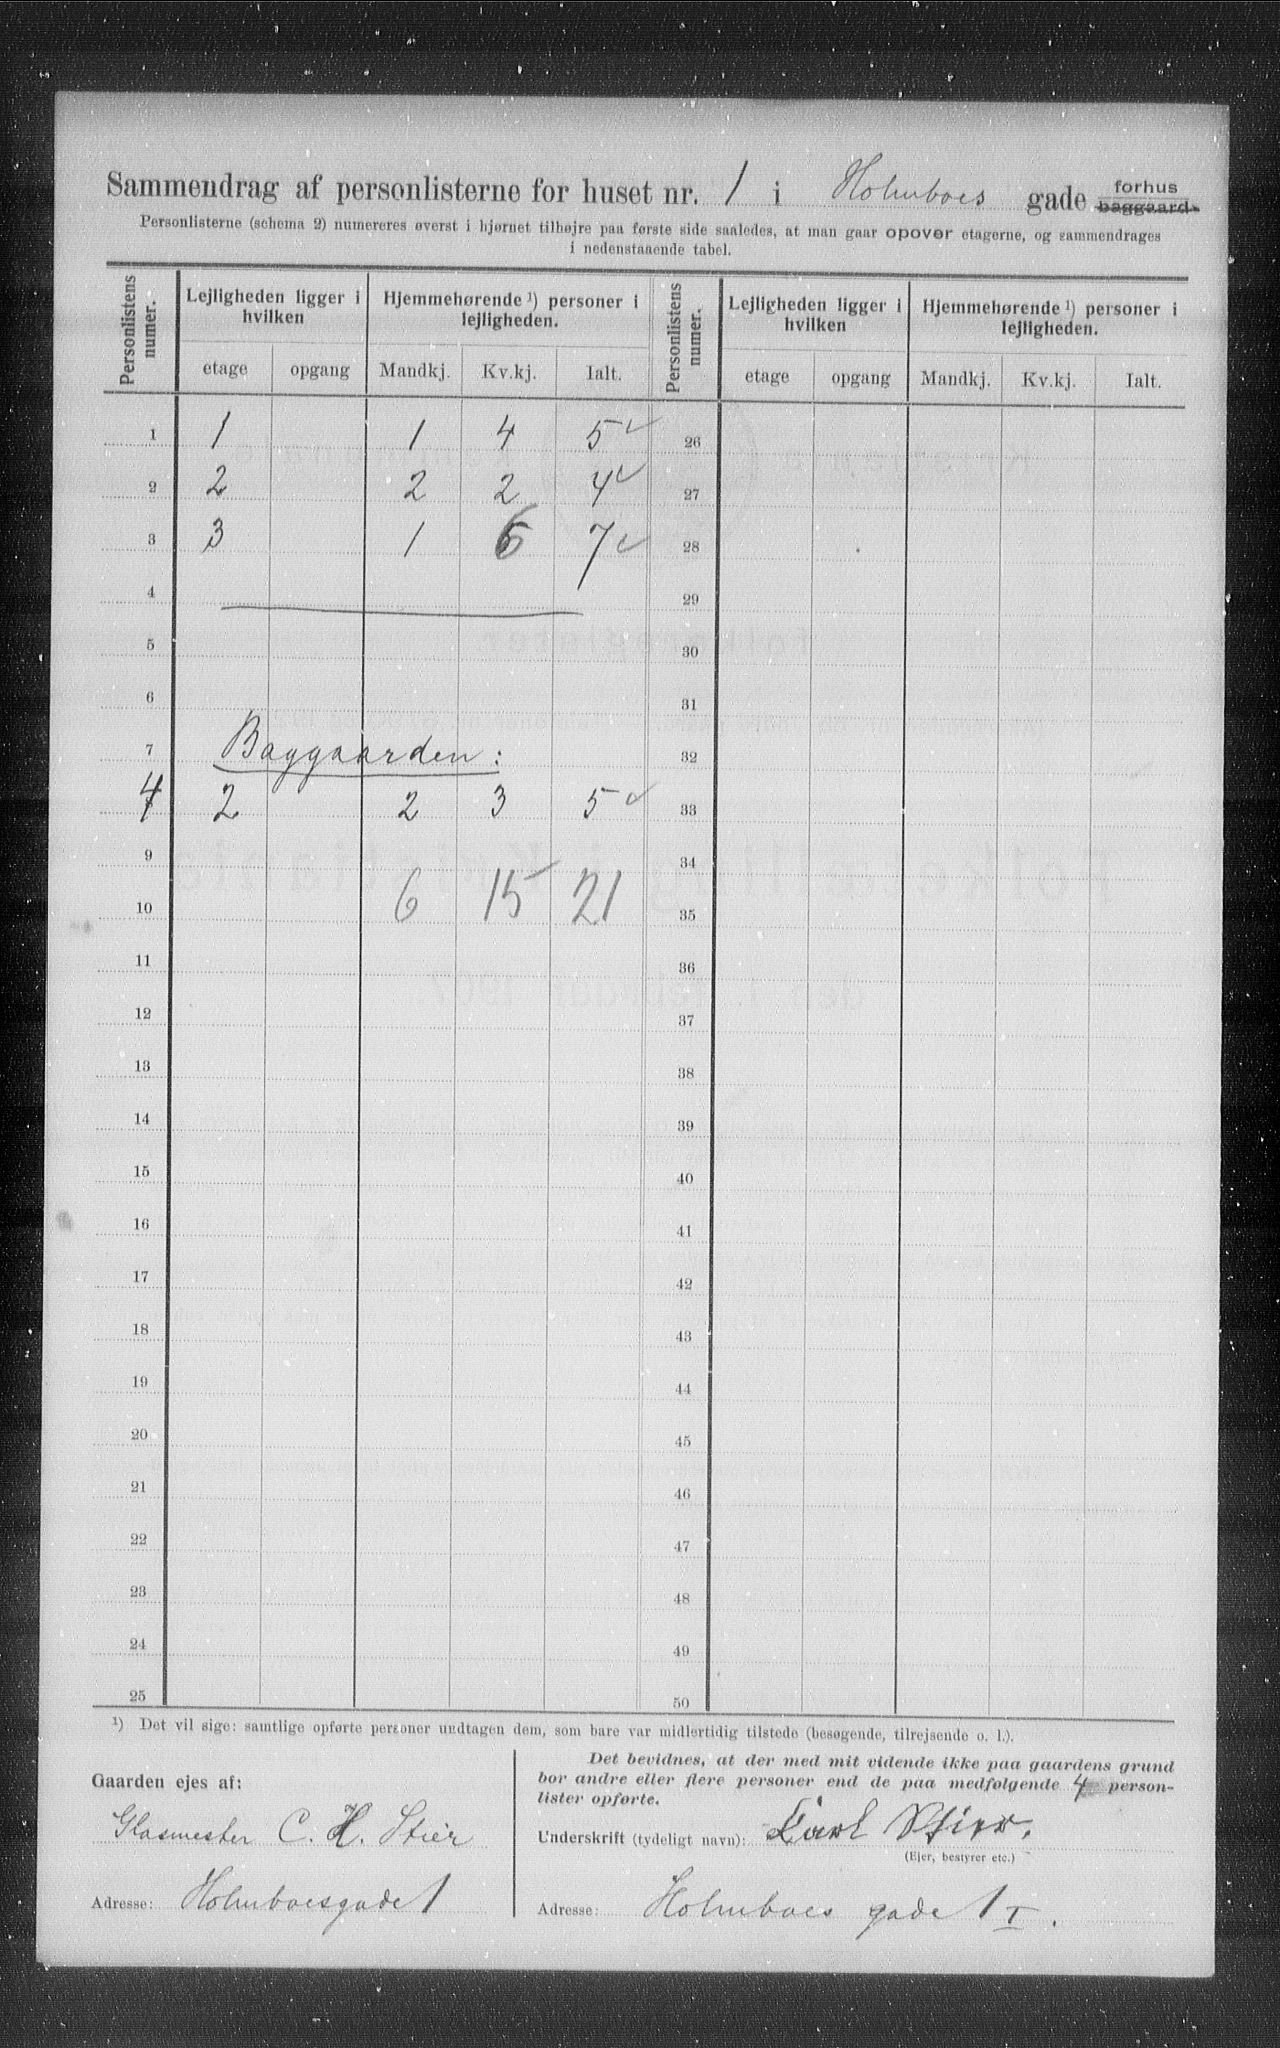 Sammendrag af personlisterne for huset nr. 1 i Holmboes gade forhus baggaard.
Personlisterne (schema 2) numereres øverst i hjørnet tilhøjre paa første side saaledes, at man gaar opover etagerne, og sammendrages
i nedenstaaende tabel.
Personlistens numer. Lejligheden ligger i hvilken Hjemmehørende ¹) personer i lejligheden. Personlistens numer. Lejligheden ligger i hvilken Hjemmehørende ¹) personer i lejligheden.
etage opgang Mandkj. Kv.kj. Ialt. etage opgang Mandkj. Kv.kj. Ialt.
1 1 1 4 5 ✓ 26
2 2 2 2 4 ✓ 27
3 3 1 6 7 ✓ 28
4 29
5 30
6 31
7 Baggaarden: 32
4 2 2 3 5 ✓ 33
9 34
10 6 15 21 35
11 36
12 37
13 38
14 39
15 40
16 41
17 42
18 43
19 44
20 45
21 46
22 47
23 48
24 49
25 50
¹) Det vil sige: samtlige opførte personer undtagen dem, som bare var midlertidig tilstede (besøgende, tilrejsende o. l.).
Gaarden ejes af:
Glasmester C. H. Stier
Adresse: Holmboesgade 1
Det bevidnes, at der med mit vidende ikke paa gaardens grund
bor andre eller flere personer end de paa medfølgende 4 person-
lister opførte.
Underskrift (tydeligt navn): Karl Stier.
(Ejer, bestyrer etc.)
Adresse: Holmboes gade 1 I.